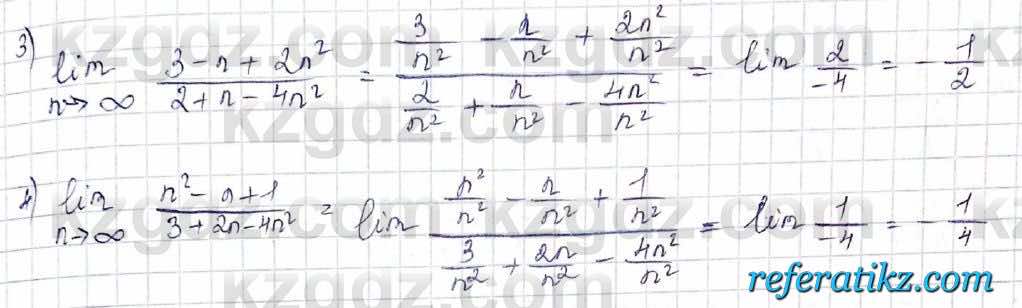 3) lim n→∞ (3-n+2n²)/(2+n-4n²) = (3/n² - n/n² + 2n²/n²)/(2/n² + n/n² - 4n²/n²) = lim 2/-4 = -1/2
4) lim n→∞ (n²-n+1)/(3+2n-4n²) = lim (n²/n² - n/n² + 1/n²)/(3/n² + 2n/n² - 4n²/n²) = lim 1/-4 = -1/4
referatikz.com